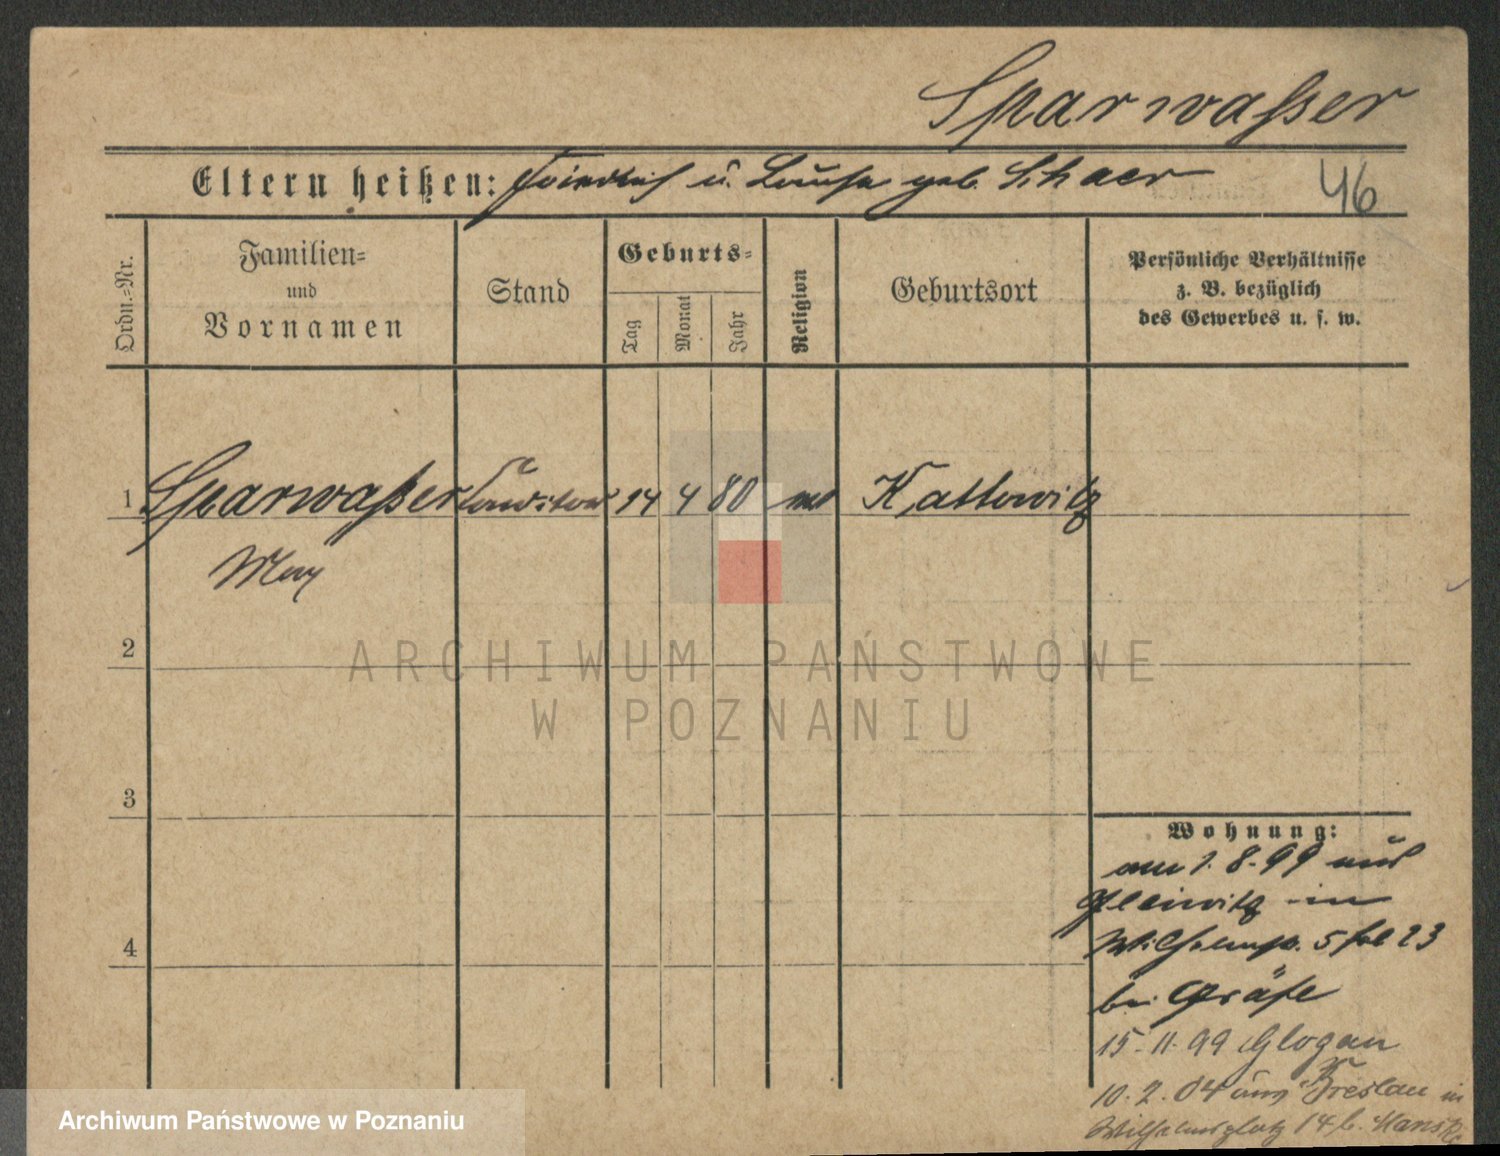 Sparwaßer
Eltern heißen: Friedrich u. Louise geb. Schaer
46
Ordn.-Nr.
Familien- und Vornamen
Stand
Geburts-
Tag
Monat
Jahr
Religion
Geburtsort
Persönliche Verhältnisse
z. B. bezüglich
des Gewerbes u. s. w.
1 Sparwaßer Konditor 14 4 80 Kattowitz
Max
2
3
4
Wohnung:
am 1. 8. 99 aus
Gleiwitz in
Wilhelmstr. 5 23
bei Gräfe
15. 11. 99 Glogau
10. 2. 04 aus Breslau in
Wilhelmsplatz 14 b.
ARCHIWUM PAŃSTWOWE
W POZNANIU
Archiwum Państwowe w Poznaniu